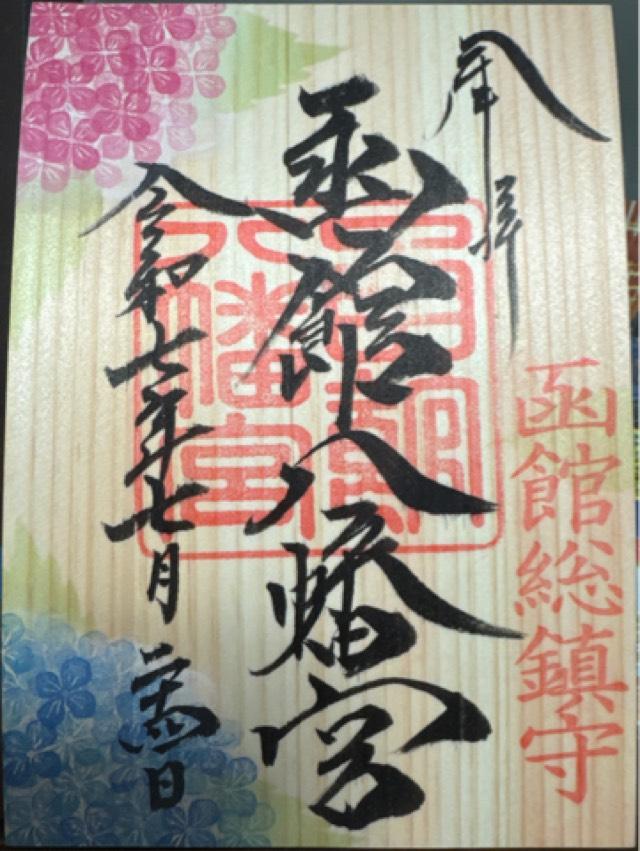 奉拝
函館総鎮守
函館八幡宮
八幡宮
令和七年七月二十四日